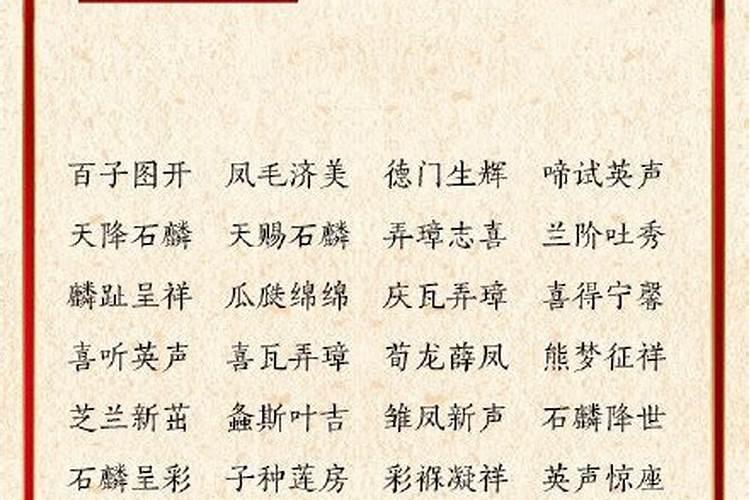 百子图开 凤毛济美 德门生辉 啼试英声
天降石麟 天赐石麟 弄璋志喜 兰阶吐秀
麟趾呈祥 瓜瓞绵绵 庆瓦弄璋 喜得宁馨
喜听英声 喜瓦弄璋 荀龙薛凤 熊梦征祥
芝兰新茁 螽斯叶吉 雏凤新声 石麟降世
石麟呈彩 子种莲房 彩褓凝祥 英声惊座